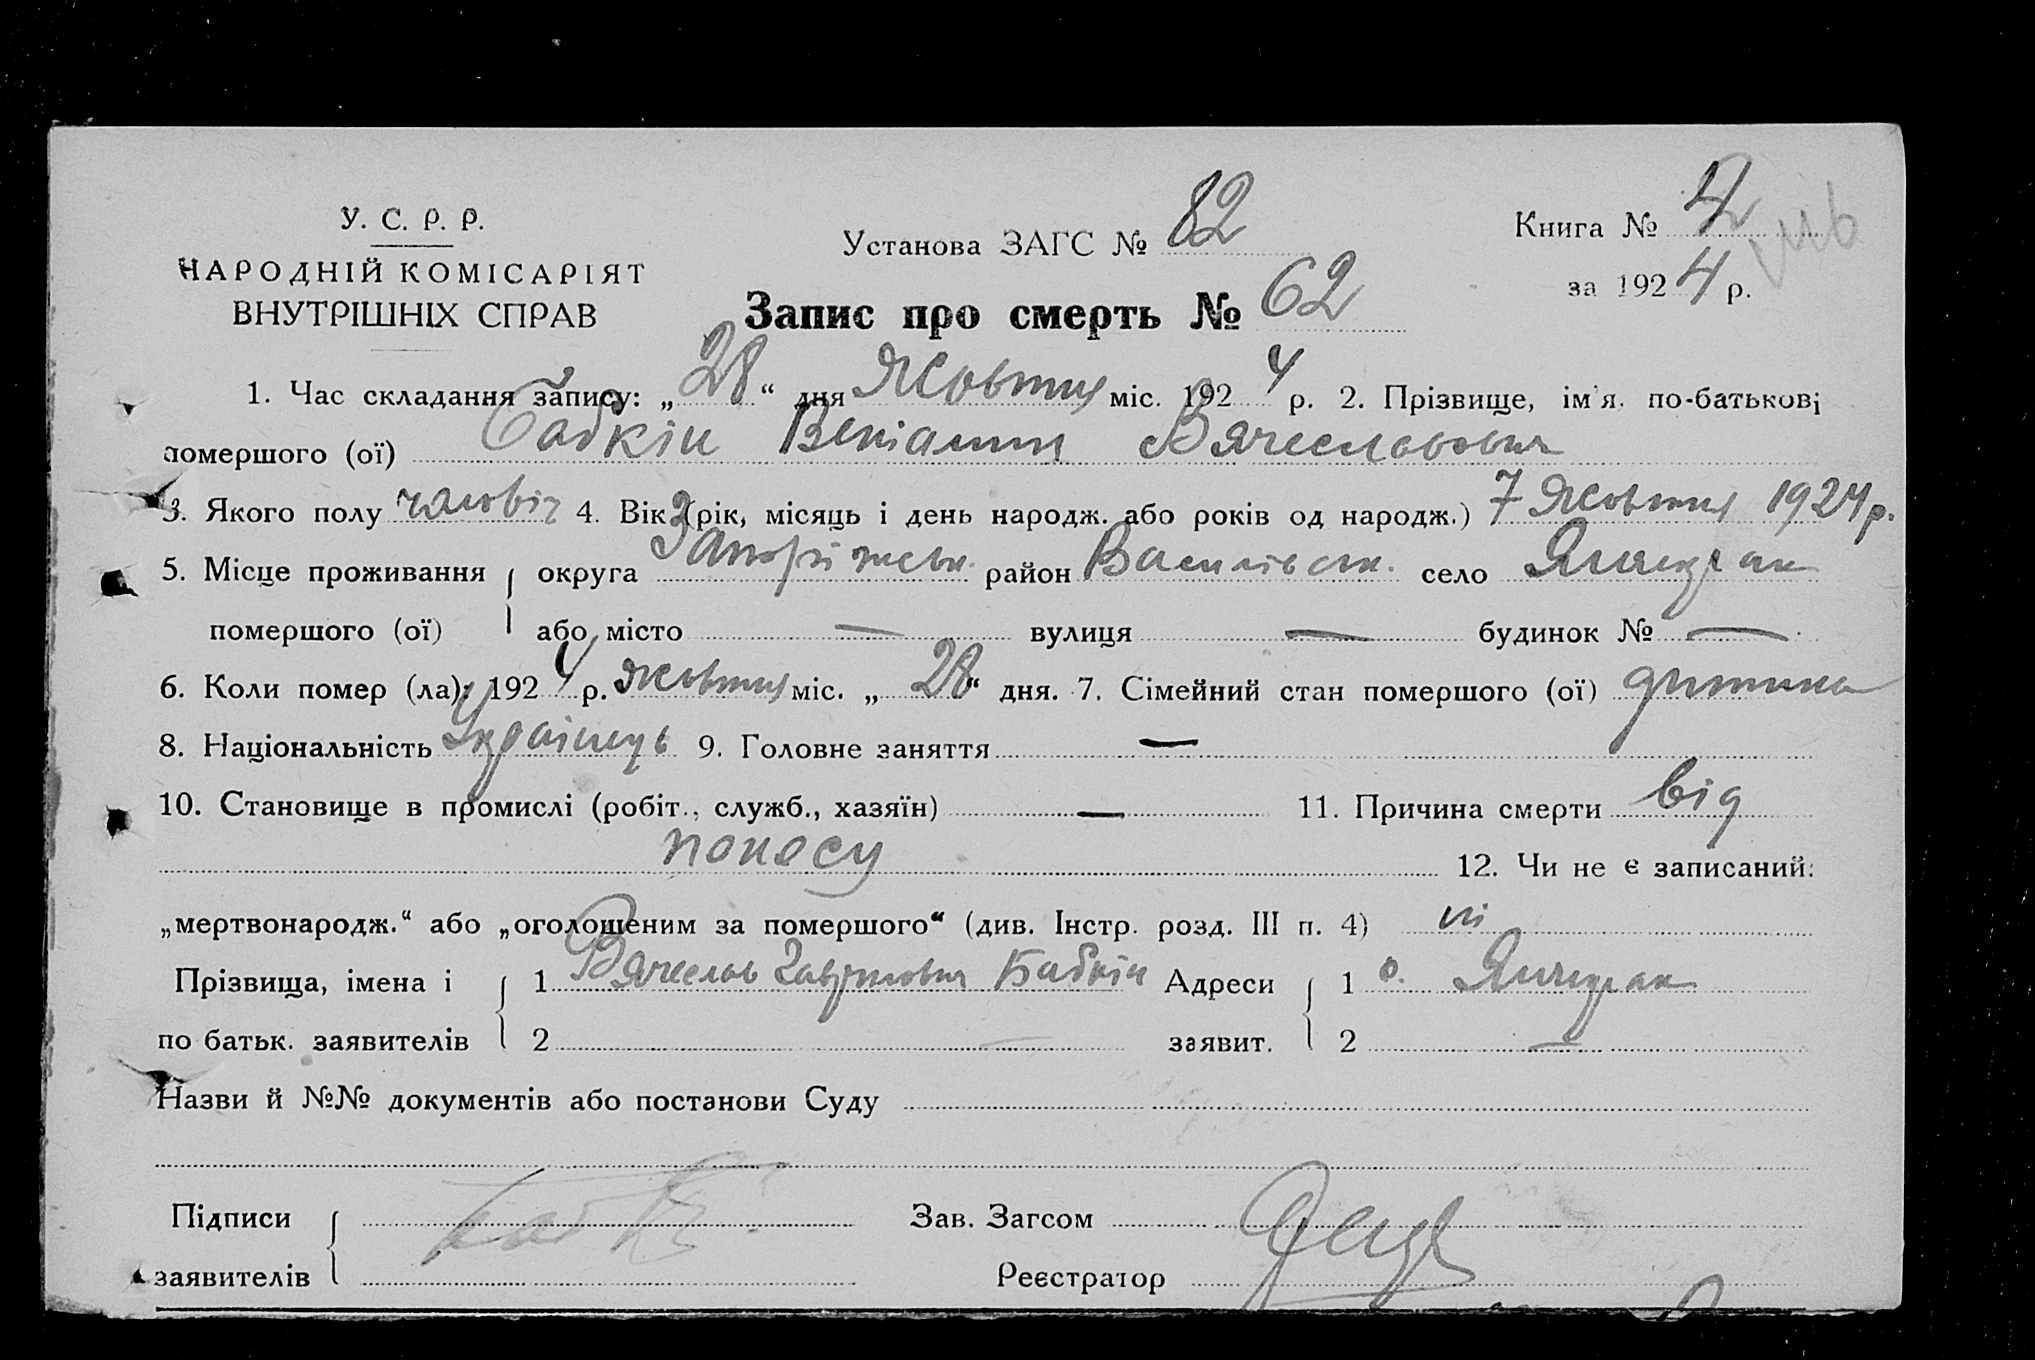 У. С. Р. Р.
НАРОДНІЙ КОМІСАРІЯТ
ВНУТРІШНІХ СПРАВ
Установа ЗАГС № 82
Книга № 2
за 1924 р.
Запис про смерть № 62
1. Час складання запису: „28“ дня Жовтня міс. 1924 р. 2. Прізвище, ім'я. по-батькові
помершого (ої) Бабкін Веніамин Вячеславович
3. Якого полу чаловіч 4. Вік (рік, місяць і день народж. або років од народж.) 7 Жовтня 1924 р.
5. Місце проживання округа Запоріжськ. район Василівськ. село Янчекрак
помершого (ої) або місто — вулиця — будинок № —
6. Коли помер (ла): 1924 р. жовтня міс. „28“ дня. 7. Сімейний стан помершого (ої) дитина
8. Національність Українець 9. Головне заняття —
10. Становище в промислі (робіт., служб., хазяїн) — 11. Причина смерти від
поносу 12. Чи не є записаний:
„мертвонародж.“ або „оголошеним за помершого“ (див. Інстр. розд. III п. 4) ні
Прізвища, імена і 1 Вячеслав Гаврилович Бабкін Адреси 1 с. Янчекрак
по батьк. заявителів 2 — заявит. 2 —
Назви й №№ документів або постанови Суду
Підписи Зав. Загсом
заявителів Реєстратор